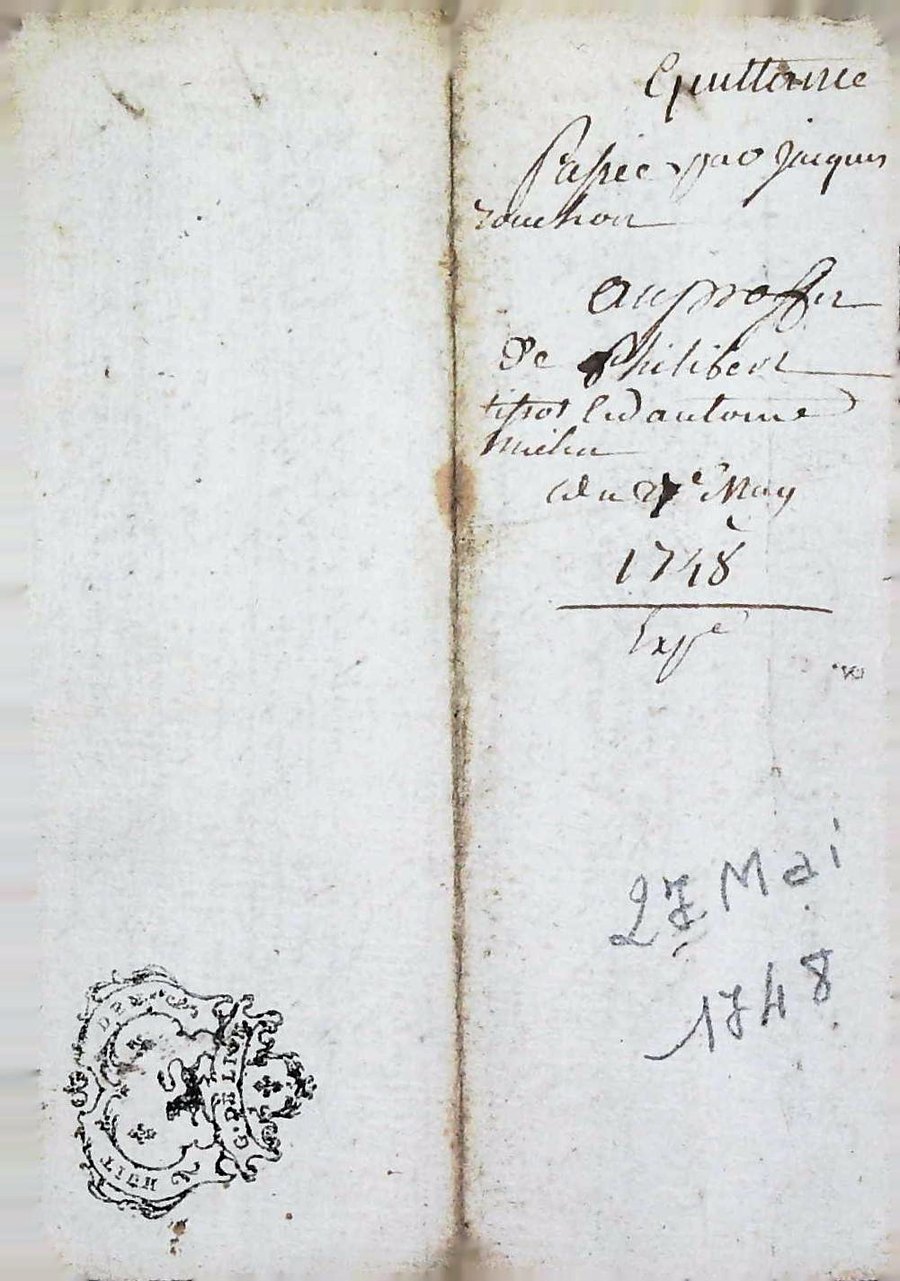 Quittance
Passée par Jacques
rouchon
au proffit
de Philibert
tissot et antoine
michu
du 27e May
1748
Expe
27 Mai
1748
G. DE LION
HUIT DEN